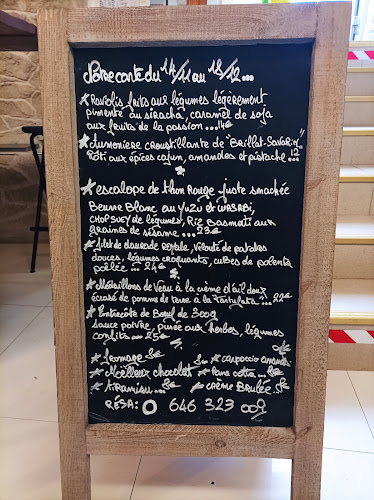 Notre carte du 14/11 au 18/12...
★ Raviolis frits aux légumes légèrement
pimenté au siracha, caramel de soja
aux fruits de la passion...14€
★ aumonière croustillante de "Brillat-Savarin"
Rôti aux épices cajun, amandes et pistache...12
★ escalope de thon Rouge juste snackée
Beurre Blanc au yuzu et wasabi,
CHOP SUEY de légumes, Riz Basmati aux
graines de sésame...23€
★ filet de daurade Royale, velouté de patates
douces, légumes croquants, cubes de polenta
poêlée...24€
★ Médaillons de veau à la crème d'ail doux
écrasé de pomme de terre à la Tartufata...
★ Entrecôte de Boeuf de 300g
sauce poivre, purée aux herbes, légumes
confits...25€
★ fromage 8€ ★ cappuccino
★ Moëlleux chocolat ★ Pana cotta...
★ tiramisu... ★ CRÈME BRULÉE..
RÉSA: 0 646 323 009